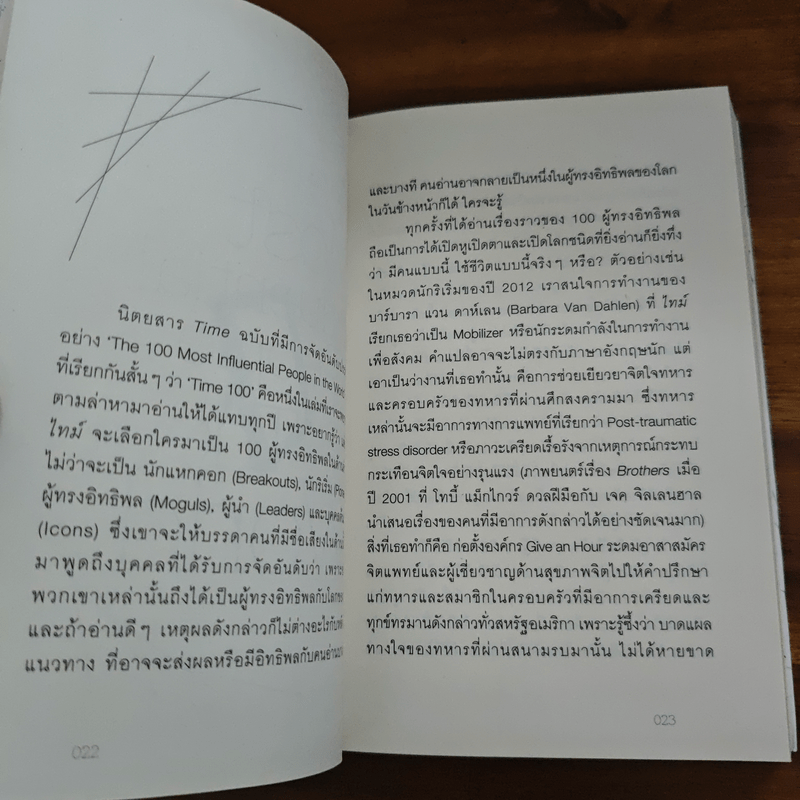 นิตยสาร Time ฉบับที่มีการจัดอันดับ
อย่าง 'The 100 Most Influential People in the World
ที่เรียกกันสั้นๆ ว่า 'Time 100' คือหนึ่งในเล่มที่เราจะ
ตามล่าหามาอ่านให้ได้แทบทุกปี เพราะอยากรู้ว่า
ไทม์ จะเลือกใครมาเป็น 100 ผู้ทรงอิทธิพลใน
ไม่ว่าจะเป็น นักแหกคอก (Breakouts), นักริเริ่ม
ผู้ทรงอิทธิพล (Moguls), ผู้นำ (Leaders) และบุคคล
(Icons) ซึ่งเขาจะให้บรรดาคนที่มีชื่อเสียงใน
มาพูดถึงบุคคลที่ได้รับการจัดอันดับว่า
พวกเขาเหล่านั้นถึงได้เป็นผู้ทรงอิทธิพลกับโลก
และถ้าอ่านดีๆ เหตุผลดังกล่าวก็ไม่ต่างอะไรกับ
แนวทาง ที่อาจจะส่งผลหรือมีอิทธิพลกับคนอ่าน
022
และบางที คนอ่านอาจกลายเป็นหนึ่งในผู้ทรงอิทธิพลของโลก
ในวันข้างหน้าก็ได้ ใครจะรู้
ทุกครั้งที่ได้อ่านเรื่องราวของ 100 ผู้ทรงอิทธิพล
ถือเป็นการได้เปิดหูเปิดตาและเปิดโลกชนิดที่ยิ่งอ่านก็ยิ่งทึ่ง
ว่า มีคนแบบนี้ ใช้ชีวิตแบบนี้จริงๆ หรือ? ตัวอย่างเช่น
ในหมวดนักริเริ่มของปี 2012 เราสนใจการทำงานของ
บาร์บารา แวน ดาห์เลน (Barbara Van Dahlen) ที่ ไทม์
เรียกเธอว่าเป็น Mobilizer หรือนักระดมกำลังในการทำงาน
เพื่อสังคม คำแปลอาจจะไม่ตรงกับภาษาอังกฤษนัก แต่
เอาเป็นว่างานที่เธอทำนั้น คือการช่วยเยียวยาจิตใจทหาร
และครอบครัวของทหารที่ผ่านศึกสงครามมา ซึ่งทหาร
เหล่านั้นจะมีอาการทางการแพทย์ที่เรียกว่า Post-traumatic
stress disorder หรือภาวะเครียดเรื้อรังจากเหตุการณ์กระทบ
กระเทือนจิตใจอย่างรุนแรง (ภาพยนตร์เรื่อง Brothers เมื่อ
ปี 2001 ที่ โทบี้ แม็กไกวร์ ดวลฝีมือกับ เจค จิลเลนฮาล
นำเสนอเรื่องของคนที่มีอาการดังกล่าวได้อย่างชัดเจนมาก)
สิ่งที่เธอทำก็คือ ก่อตั้งองค์กร Give an Hour ระดมอาสาสมัคร
จิตแพทย์และผู้เชี่ยวชาญด้านสุขภาพจิตไปให้คำปรึกษา
แก่ทหารและสมาชิกในครอบครัวที่มีอาการเครียดและ
ทุกข์ทรมานดังกล่าวทั่วสหรัฐอเมริกา เพราะรู้ซึ้งว่า บาดแผล
ทางใจของทหารที่ผ่านสนามรบมานั้น ไม่ได้หายขาด
023